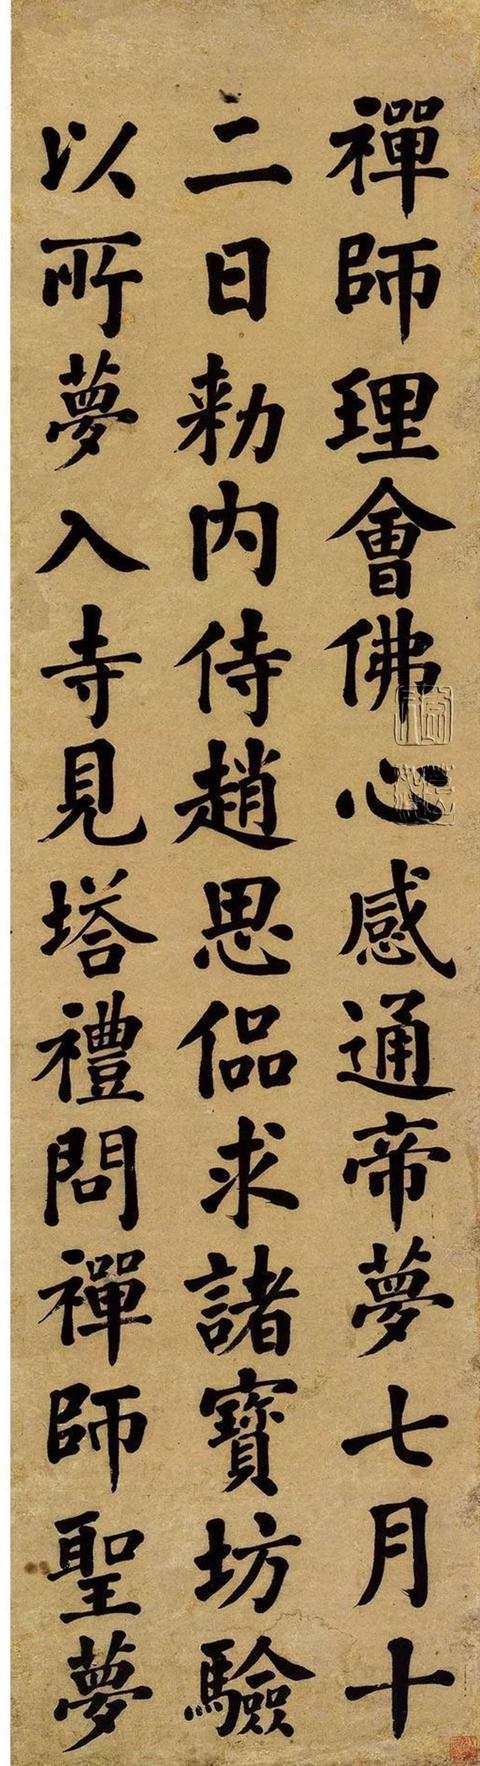 禪師理會佛心感通帝夢七月十
二日勑内侍趙思偘求諸寶坊驗
以所夢入寺見塔禮問禪師聖夢